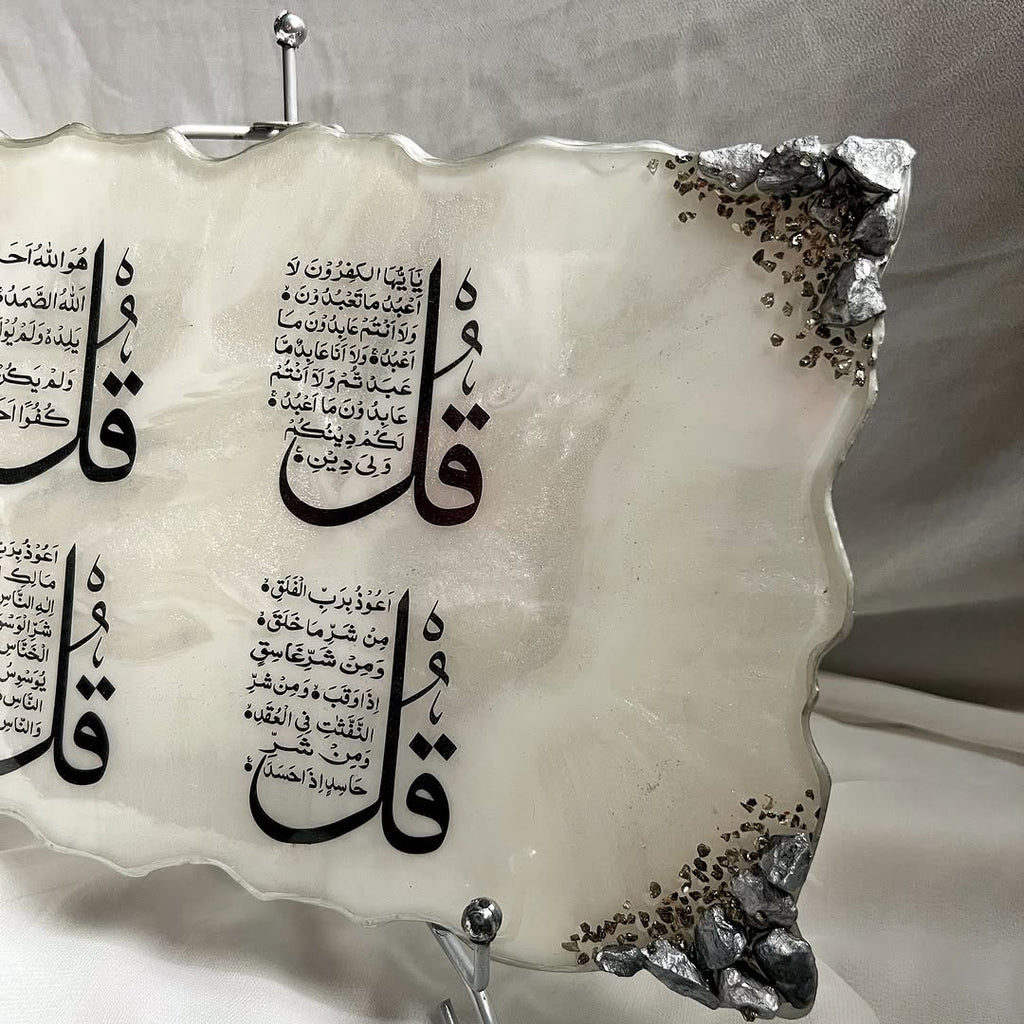 قُل
يَاَيُّهَا الكٰفِرُوْنَ لَا
اَعْبُدُ مَا تَعْبُدُوْنَ
وَلَا اَنْتُمْ عَابِدُوْنَ مَا
اَعْبُدُ وَلَا اَنَا عَابِدٌ مَّا
عَبَدْتُّمْ وَلَا اَنْتُمْ
عَابِدُوْنَ مَا اَعْبُدُ
لَكُمْ دِيْنُكُمْ
وَلِيَ دِيْنِ
قُل
هُوَ اللّٰهُ اَحَ
اَللّٰهُ الصَّمَدُ
يَلِدْ وَلَمْ يُوْلَ
وَلَمْ يَكُنْ
كُفُوًا اَحَ
قُل
اَعُوْذُ بِرَبِّ الْفَلَقِ
مِنْ شَرِّ مَا خَلَقَ
وَمِنْ شَرِّ غَاسِقٍ
اِذَا وَقَبَ وَمِنْ شَرِّ
النَّفّٰثٰتِ فِي الْعُقَدِ
وَمِنْ شَرِّ
حَاسِدٍ اِذَا حَسَدَ
قُل
اَعُوْذُ بِرَبِّ
مَالِكِ
اِلٰهِ النَّاسِ
شَرِّ الْوَسْوَ
الْخَنَّاسِ
يُوَسْوِسُ
النَّاسِ
وَالنَّاسِ